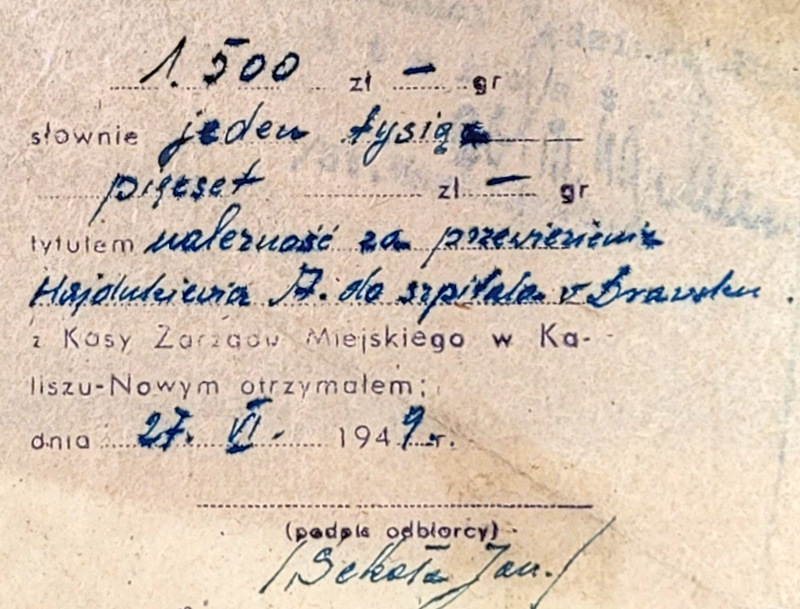 1.500 zł — gr
słownie jeden tysiąc
pięset zł — gr
tytułem należność za przewiezienie
Hajdukiewicza A. do szpitala w Drawsku.
z Kasy Zarządu Miejskiego w Ka-
liszu-Nowym otrzymałem;
dnia 27. VI. 1949 r.
(podpis odbiorcy)
/Sekoła Jan./